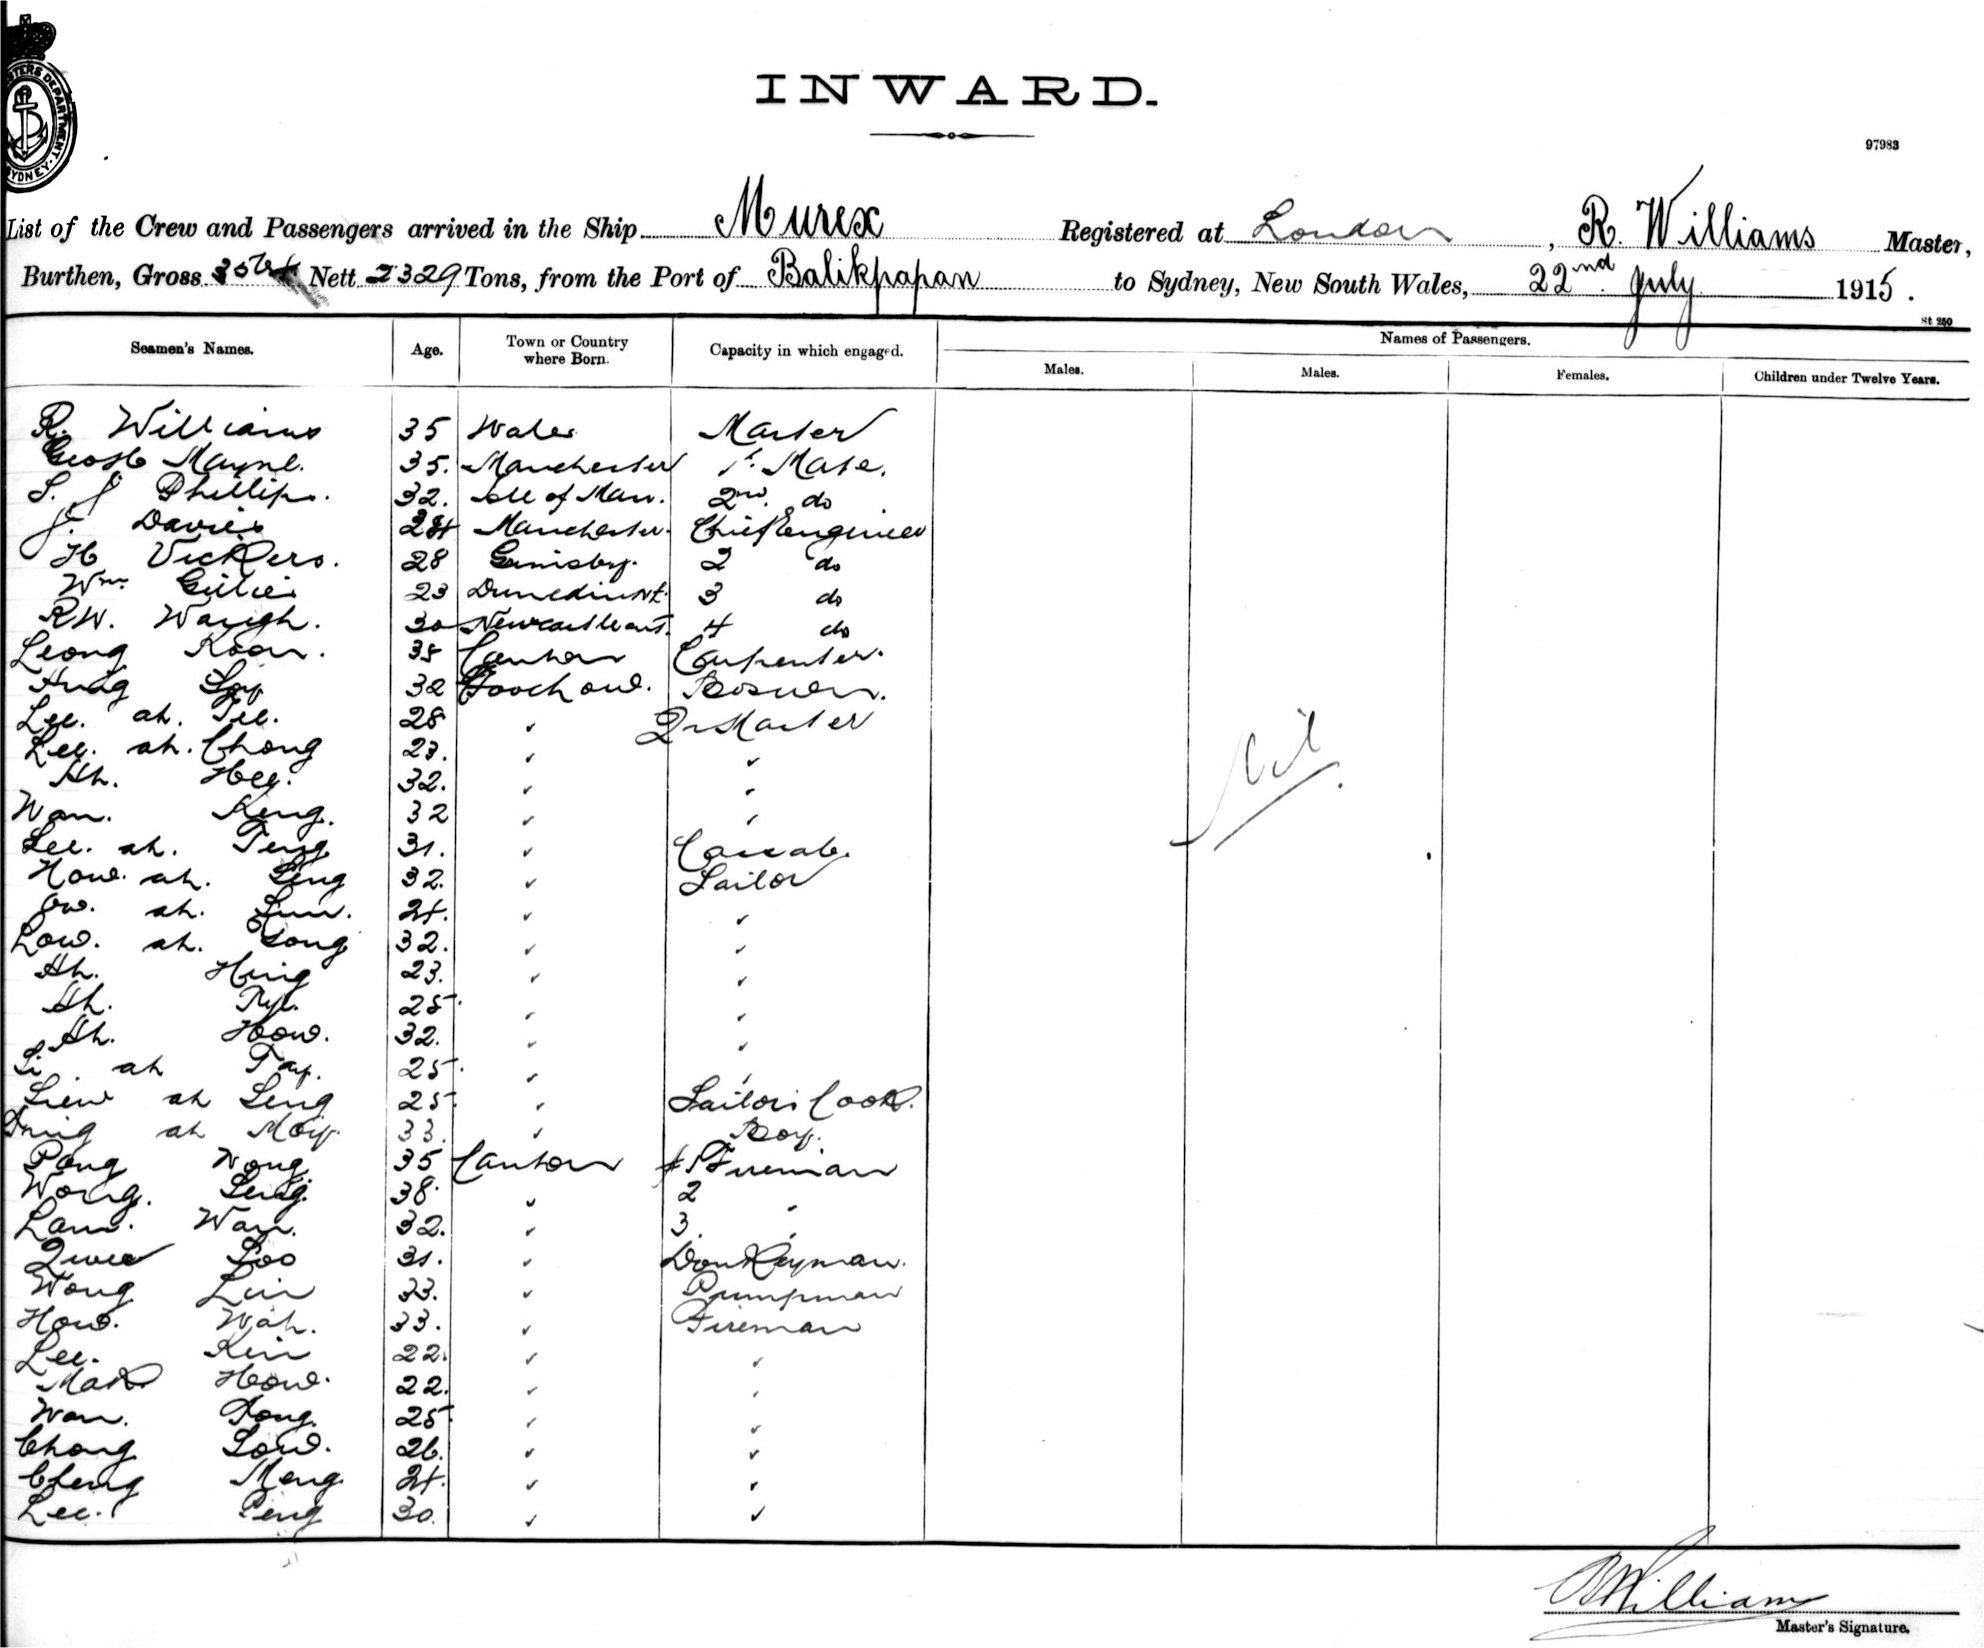 INWARD.
97983
List of the Crew and Passengers arrived in the Ship Murex Registered at London, R. Williams Master,
Burthen, Gross Nett 2329 Tons, from the Port of Balikpapan to Sydney, New South Wales, 22nd July 1915.
St 250
Seamen's Names. Age. Town or Country where Born. Capacity in which engaged. Names of Passengers.
Males. Males. Females. Children under Twelve Years.
R. Williams 35 Wales Master
Mayne. 35. Manchester 1st. Mate.
S. J Phillips. 32. Isle of Man. 2nd. do
J. Davies Manchester. Chief engineer
H Vickers. 28 Grimsby. 2 do
Wm. Gillies 23 Dunedin NZ. 3 do
RW. Waugh. 30 4 do
Leong Koon. 38 Canton Carpenter.
32 Foochow. Bosun.
Lee. ah. Tee. 28 " Qr Master
Lee. ah. Chong 23. " "
Ah. Hee. 32. " "
Wan. Keng. 32 " "
Lee. ah. Teng 31. " Cassab.
How. ah. Seng 32. " Sailor
Ow. ah. 24. " "
Low. ah. Song 32. " "
Ah. Hing 23. " "
Ah. 25. " "
Ah. How. 32. " "
Li. ah Tay. 25. " "
Liew ah Seng 25. " Sailors Cook.
ah Moy. 33. " Boy.
Pong Wong 35 Canton 1 Fireman
Wong. Seng. 38. " 2 "
Lam. Wan. 32. " 3. "
Loo 31. " Donkeyman.
Wong Lin 33. " Pumpman
How. Wah. 33. " Fireman
Lee. Kin 22. " "
Mak How. 22. " "
Wan. Tong. 25. " "
Chong Low. 26. " "
Cheng Meng. 24. " "
Lee. Peng 30. " "
Nil.
R Williams
Master's Signature.